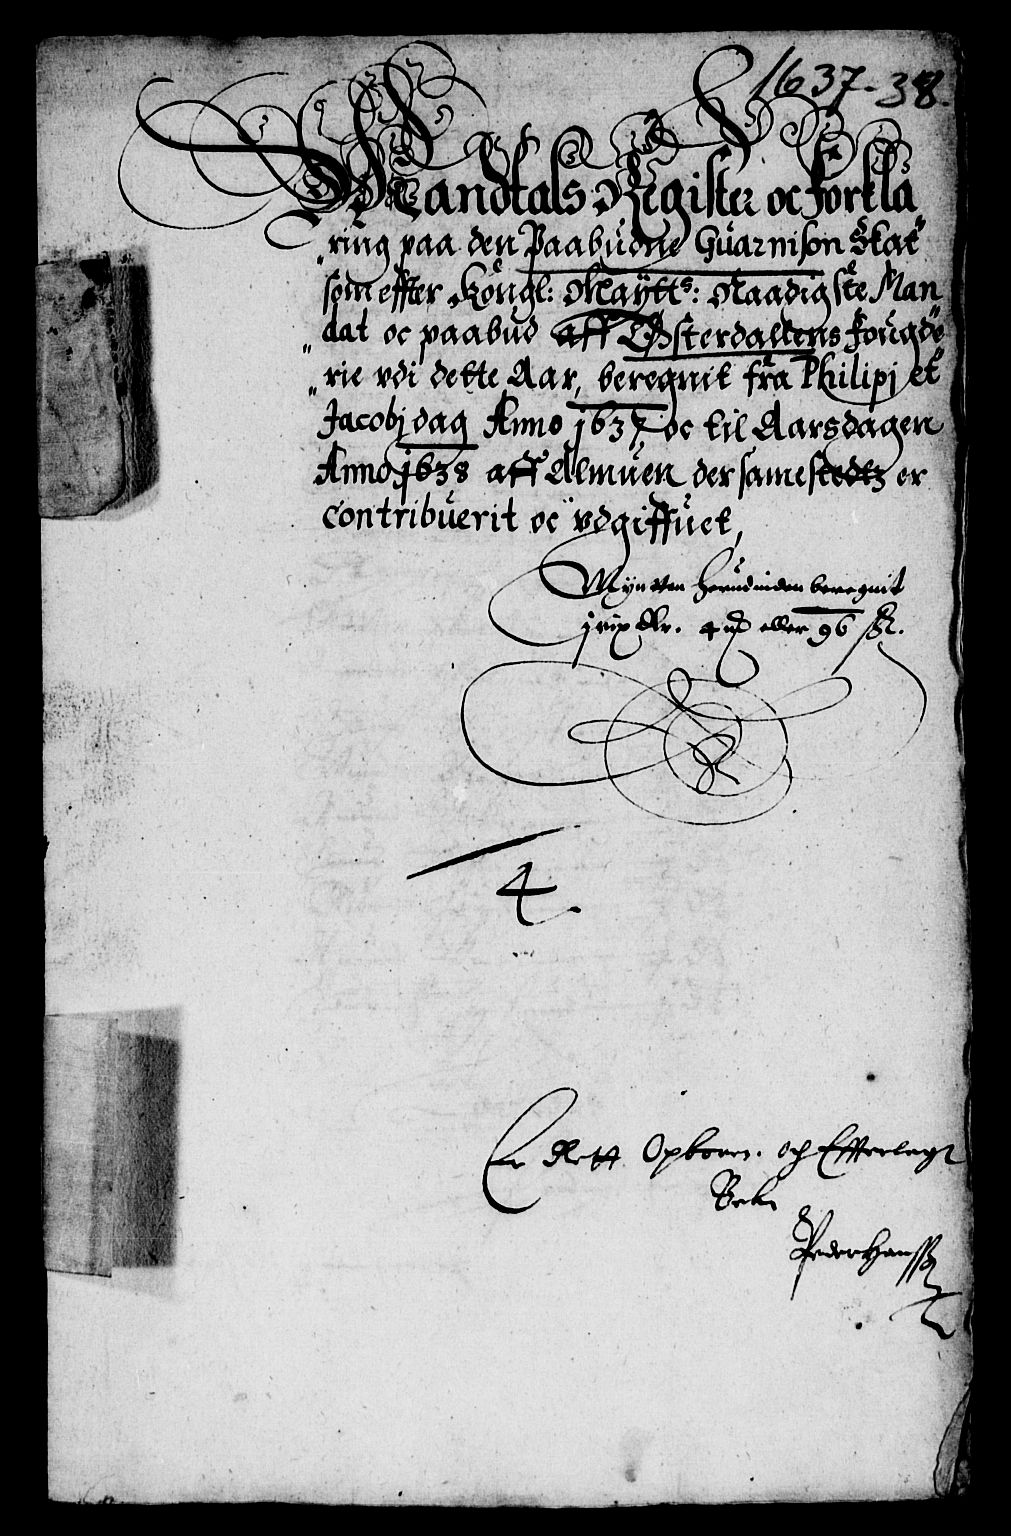 1637-38.
Mandtals Register oc Forkla
„ring paa den Paabudne Guarnison Skat
som effter Kongl: Maÿtts: Naadigste Man
„dat oc paabud aff Østerdallens Fougde
„rie vdi dette Aar, beregnit fra Philipj et
Jacobj dag Anno 1637, oc til Aarsdagen
Anno 1638 aff Almuen dersamestedtz er
contribuerit oc vdgiffuet,
Mynten herudinden beregnit
j rix dlr. 4 mk eller 96 ß.
4
Er Rett Opboren. och Efferlagt
Bek
Peder Hanss